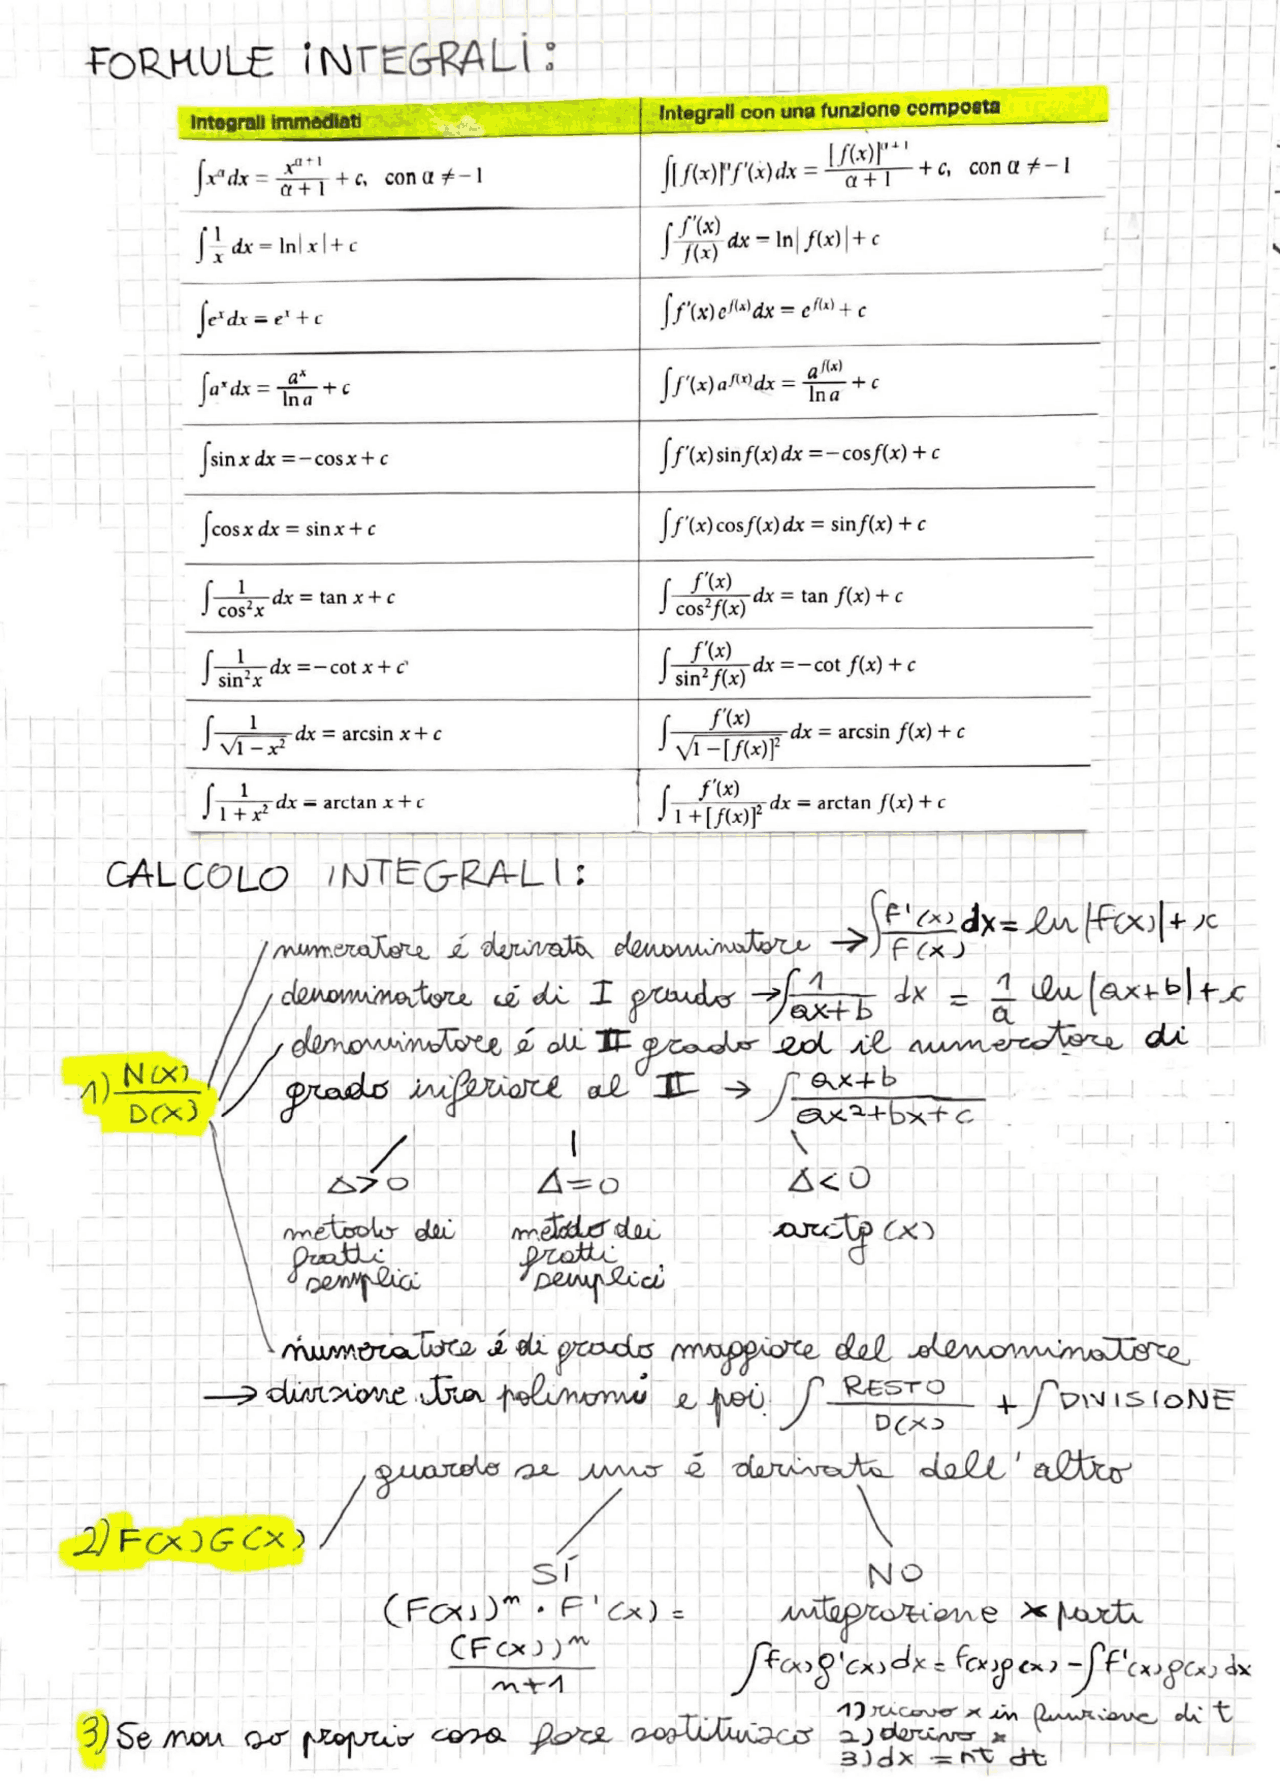 FORMULE INTEGRALI:
Integrali immediati | Integrali con una funzione composta
∫xᵅ dx = xᵅ⁺¹/(α + 1) + c, con α ≠ −1 | ∫[f(x)]ᵅ f'(x) dx = [f(x)]ᵅ⁺¹/(α + 1) + c, con α ≠ −1
∫1/x dx = ln|x| + c | ∫f'(x)/f(x) dx = ln|f(x)| + c
∫eˣ dx = eˣ + c | ∫f'(x) e^f(x) dx = e^f(x) + c
∫aˣ dx = aˣ/ln a + c | ∫f'(x) a^f(x) dx = a^f(x)/ln a + c
∫sin x dx = −cos x + c | ∫f'(x) sin f(x) dx = −cos f(x) + c
∫cos x dx = sin x + c | ∫f'(x) cos f(x) dx = sin f(x) + c
∫1/cos²x dx = tan x + c | ∫f'(x)/cos² f(x) dx = tan f(x) + c
∫1/sin²x dx = −cot x + c | ∫f'(x)/sin² f(x) dx = −cot f(x) + c
∫1/√(1 − x²) dx = arcsin x + c | ∫f'(x)/√(1 − [f(x)]²) dx = arcsin f(x) + c
∫1/(1 + x²) dx = arctan x + c | ∫f'(x)/(1 + [f(x)]²) dx = arctan f(x) + c
CALCOLO INTEGRALI:
1) N(x)/D(x)
numeratore é derivata denominatore → ∫F'(x)/F(x) dx = ln|F(x)| + c
denominatore é di I grado → ∫1/(ax+b) dx = 1/a ln|ax+b| + c
denominatore é di II grado ed il numeratore di
grado inferiore al II → ∫(ax+b)/(ax²+bx+c)
Δ>0 Δ=0 Δ<0
metodo dei metodo dei arctg(x)
fratti fratti
semplici semplici
numeratore é di grado maggiore del denominatore
→ divisione tra polinomi e poi ∫RESTO/D(x) + ∫DIVISIONE
2) F(x)G(x)
guardo se uno é derivata dell'altro
SÍ NO
(F(x))ⁿ · F'(x) = integrazione x parti
(F(x))ⁿ/(n+1) ∫f(x)g'(x)dx = f(x)g(x) − ∫f'(x)g(x)dx
3) Se non so proprio cosa fare sostituisco
1) ricavo x in funzione di t
2) derivo x
3) dx = nt dt